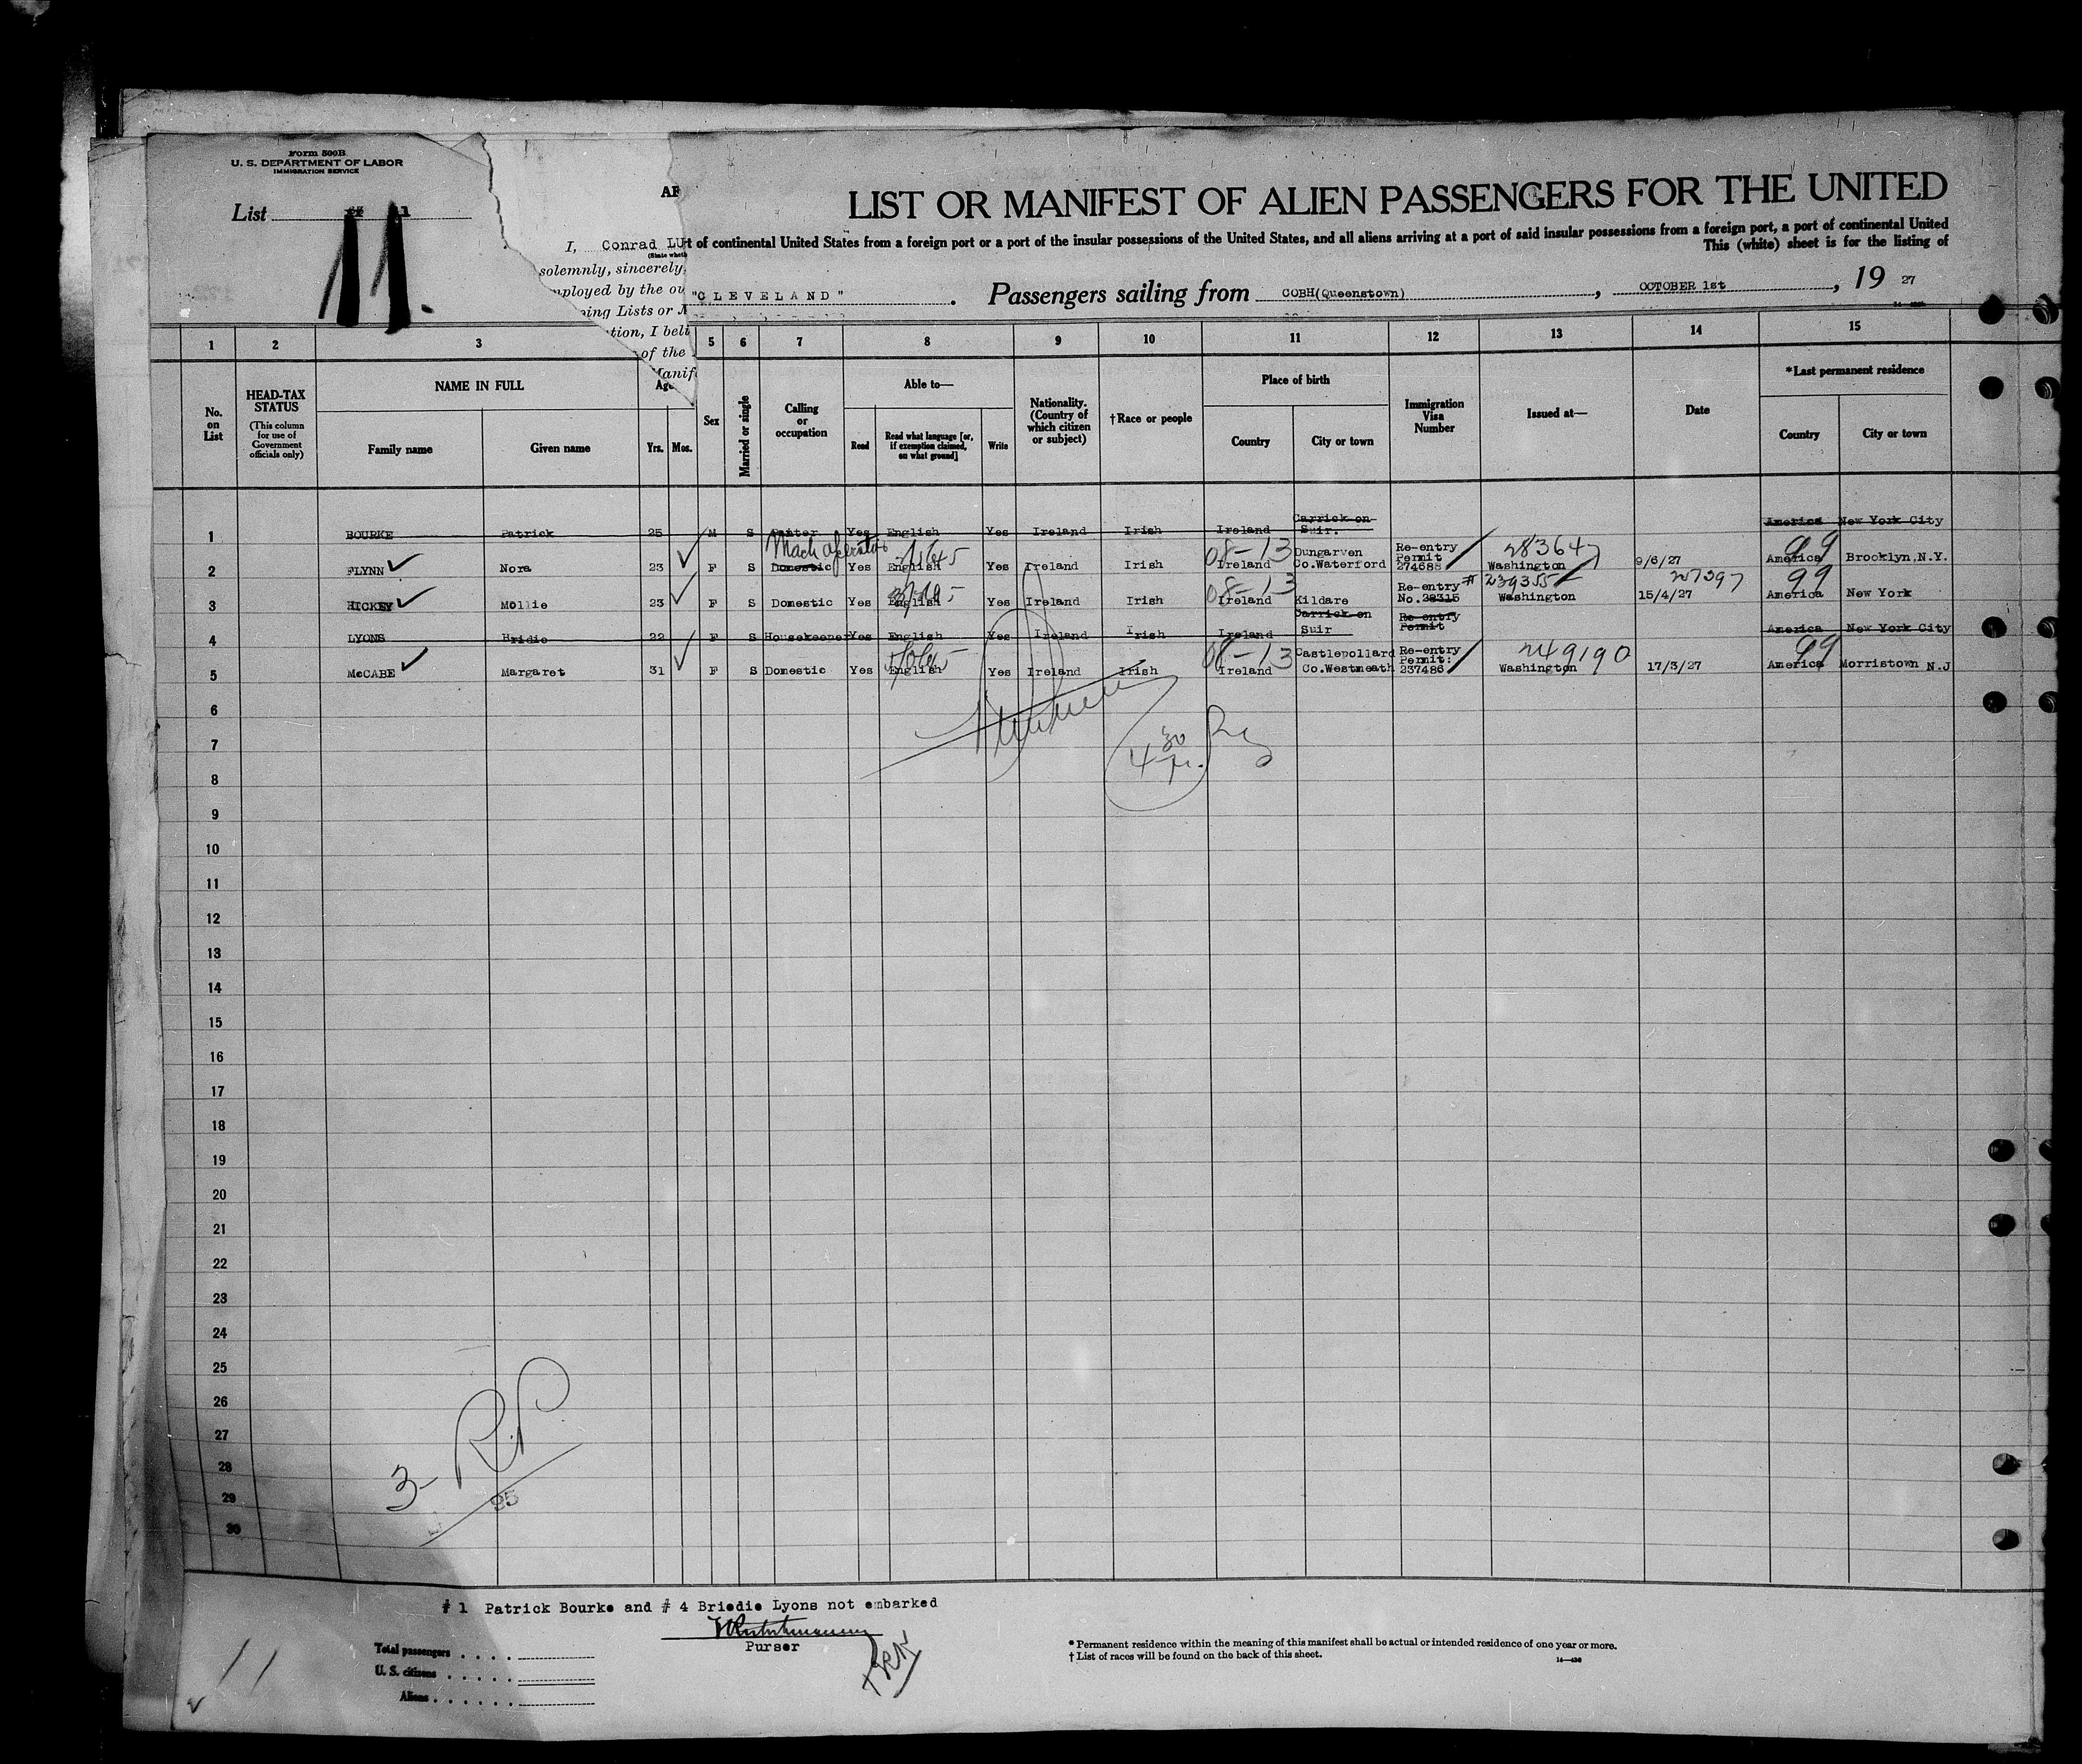 Form 500B
U. S. DEPARTMENT OF LABOR
IMMIGRATION SERVICE
List 11
11.
AF
I, Conrad LU
(State wheth
solemnly, sincerely
mployed by the ou
ing Lists or M
tion, I beli
of the
Manif
LIST OR MANIFEST OF ALIEN PASSENGERS FOR THE UNITED
t of continental United States from a foreign port or a port of the insular possessions of the United States, and all aliens arriving at a port of said insular possessions from a foreign port, a port of continental United
This (white) sheet is for the listing of
"CLEVELAND" . Passengers sailing from COBH(Queenstown), OCTOBER 1st, 19 27
1 2 3 5 6 7 8 9 10 11 12 13 14 15
No. on List
HEAD-TAX STATUS (This column for use of Government officials only)
NAME IN FULL
Family name Given name
Age
Yrs. Mos.
Sex
Married or single
Calling or occupation
Able to—
Read Read what language [or, if exemption claimed, on what ground] Write
Nationality. (Country of which citizen or subject)
†Race or people
Place of birth
Country City or town
Immigration Visa Number
Issued at—
Date
*Last permanent residence
Country City or town
1 BOURKE Patrick 25 M S Yes English Yes Ireland Irish Ireland Carrick on Suir. America New York City
Mach operator
2 FLYNN Nora 23 F S Domestic Yes English Yes Ireland Irish 08-13 Ireland Dungarven Co.Waterford Re-entry Permit 274688 283647 Washington 9/6/27 99 America Brooklyn,N.Y.
3 HICKEY Mollie 23 F S Domestic Yes English Yes Ireland Irish 08-13 Ireland Kildare Re-entry No.28315 #239355 Washington 227397 15/4/27 99 America New York
4 LYONS Bridie 22 F S Housekeeper Yes English Yes Ireland Irish Ireland Carrick on Suir Re-entry Permit America New York City
5 McCABE Margaret 31 F S Domestic Yes English Yes Ireland Irish 08-13 Ireland Castlepollard Co.Westmeath Re-entry Permit: 237486 249190 Washington 17/3/27 99 America Morristown N.J
6
7
4 30
8
9
10
11
12
13
14
15
16
17
18
19
20
21
22
23
24
25
26
27
28
29
30
3- R.P.
95
# 1 Patrick Bourke and # 4 Briedie Lyons not embarked
Purser
Total passengers . . . .
U. S. citizens . . . . . .
Aliens . . . . . .
11
* Permanent residence within the meaning of this manifest shall be actual or intended residence of one year or more.
† List of races will be found on the back of this sheet.